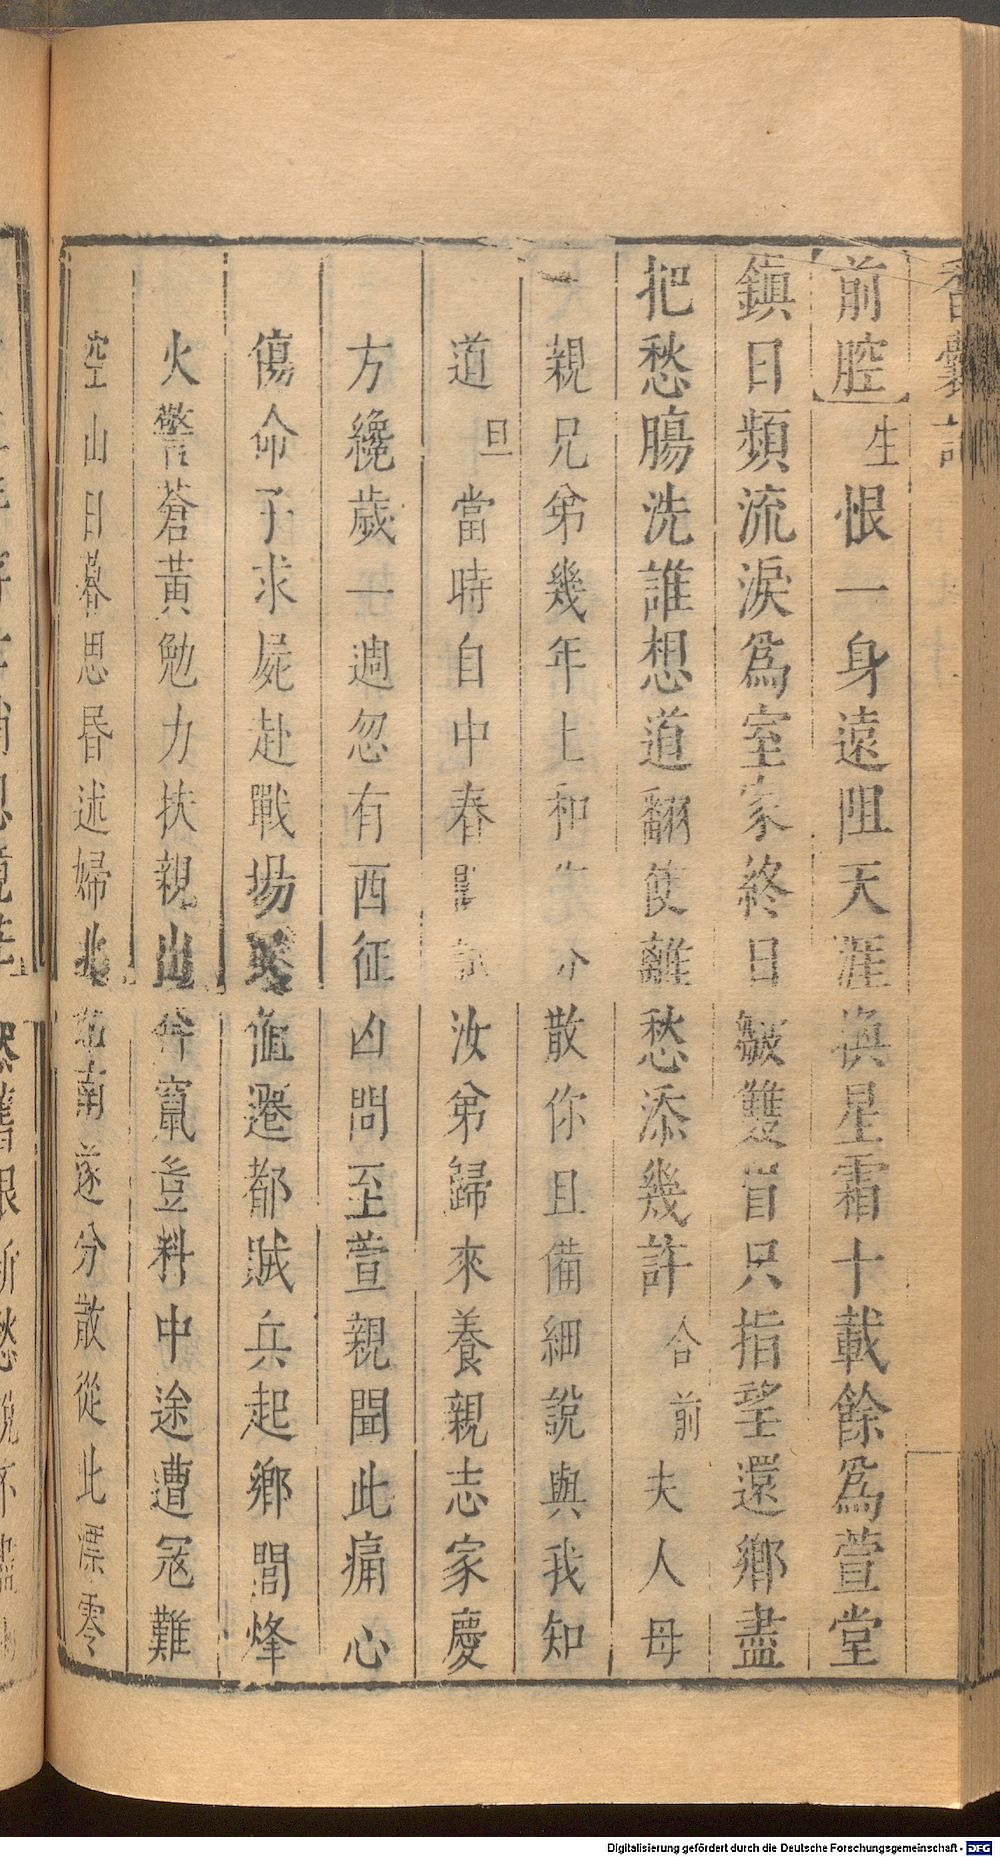 香囊記
前腔 生 恨一身遠阻天涯換星霜十載餘爲萱堂
鎮日頻流淚爲室家終日皺雙眉只指望還鄉盡
把愁腸洗誰想道翻使離愁添幾許 合前 夫人母
親兄弟幾年上和 分散你且備細說與我知
道 旦 當時自中春 汝弟歸來養親志家慶
方纔歲一週忽有西征凶問至萱親聞此痛心
傷命子求屍赴戰場 遷都賊兵起鄉閭烽
火警蒼黃勉力扶親山 竄豈料中途遭冦難
空山日暮思昏述婦北 南遂分散從此漂零
Digitalisierung gefördert durch die Deutsche Forschungsgemeinschaft - DFG